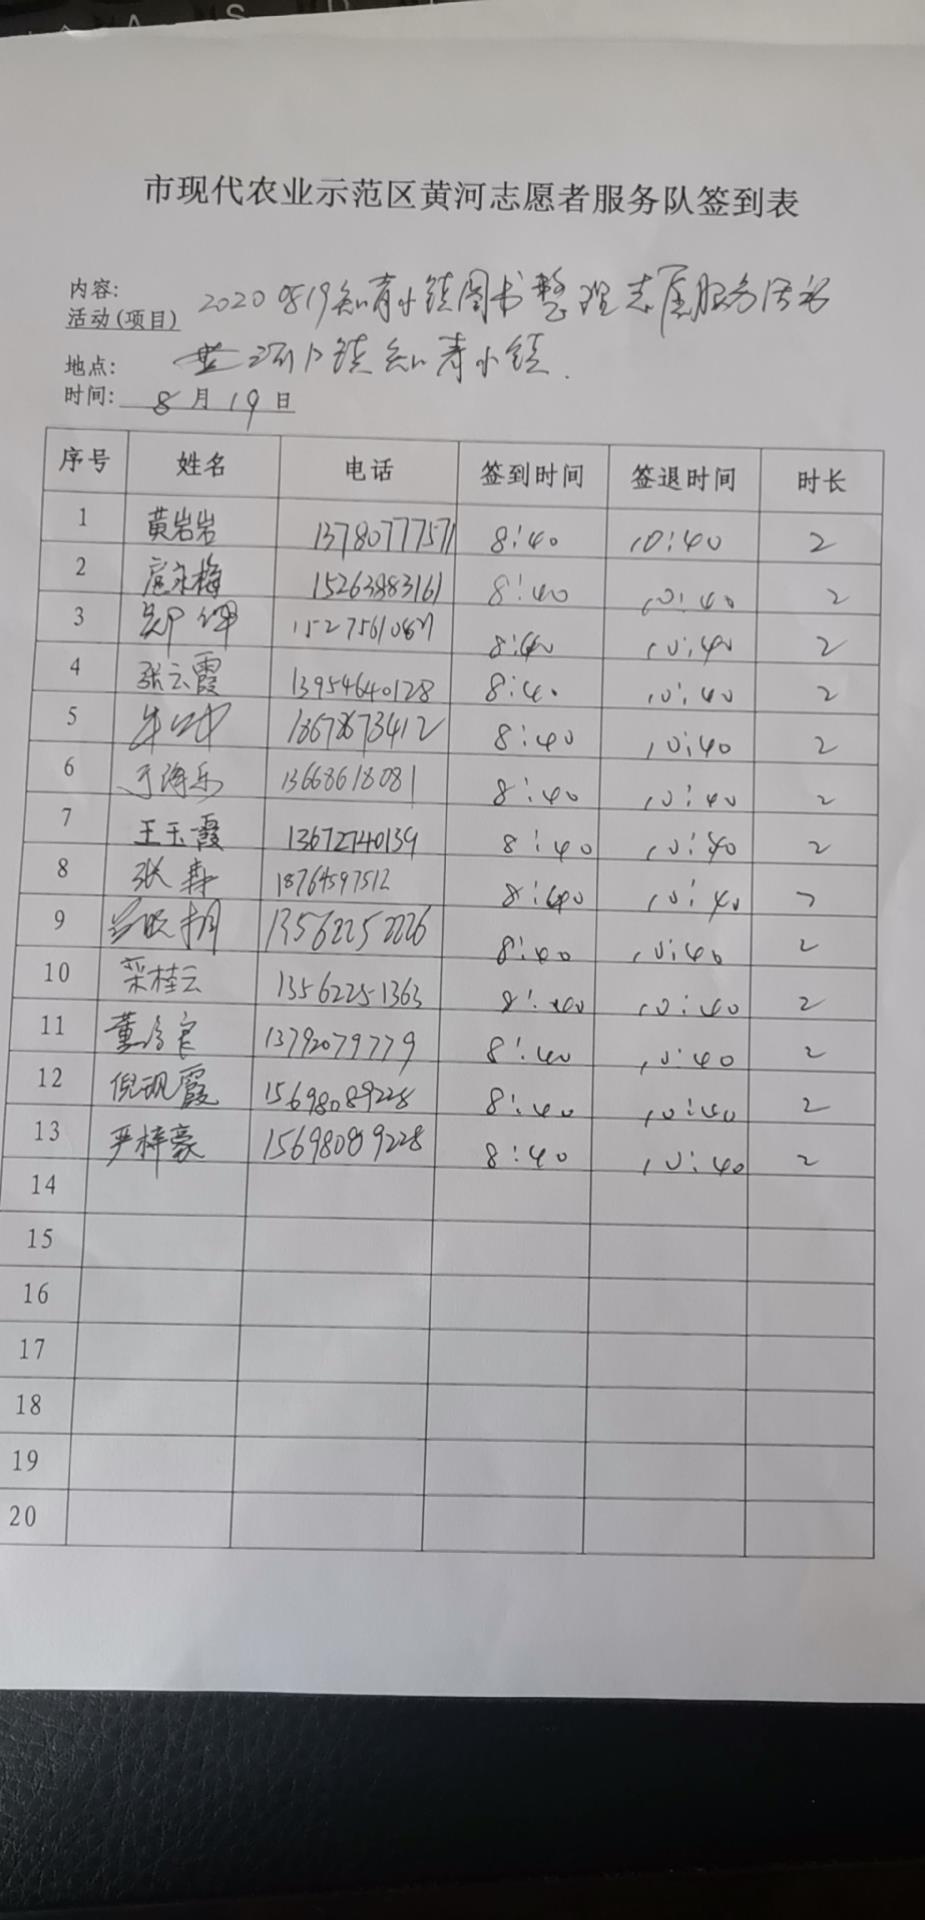 市现代农业示范区黄河志愿者服务队签到表
内容:
活动(项目) 2020 0819知青小镇图书整理志愿服务活动
地点: 镇知青小镇.
时间: 8月19日
序号 姓名 电话 签到时间 签退时间 时长
1 黄岩岩 13780777571 8:40 10:40 2
2 永梅 15263883161 8:40 10:40 2
3 郑 8:40 10:40 2
4 张云霞 13954640128 8:40 10:40 2
5 13678673412 8:40 10:40 2
6 于海乐 13668618081 8:40 10:40 2
7 王玉霞 13672740139 8:40 10:40 2
8 张 18764597512 8:40 10:40 2
9 13562252226 8:40 10:40 2
10 桂云 13562251363 8:40 10:40 2
11 董 13792079779 8:40 10:40 2
12 倪砚霞 15698089228 8:40 10:40 2
13 严梓豪 15698089228 8:40 10:40 2
14
15
16
17
18
19
20